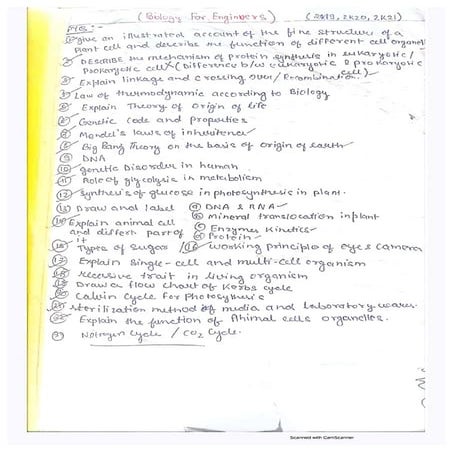 (Biology For Engineers) (2K19, 2K20, 2K21)
① Give an illustrated account of the fine structure of a
plant cell and describe the function of different cell organel
② DESCRIBE the mechanism of protein synthesis in eukaryotic /
Prokaryotic cells (Difference b/w eukaryotic & prokaryotic
cell)
③ Explain linkage and crossing over / Recombination
④ Law of thermodynamic according to Biology
⑤ Explain Theory of origin of life
⑥ Genetic code and properties
⑦ Mendel's laws of inheritence
⑧ Big Bang Theory on the basis of origin of earth
⑨ DNA
⑩ genetic Disorder in human
⑪ Role of glycolysis in metabolism
⑫ Synthesis of glucose in photosynthesis in plant.
⑬ Draw and label DNA & RNA
⑭ Explain animal cell Mineral translocation in plant
and differt part of Enzyme Kinetics
it Protein
⑮ Types of sugar ⑯ Working principle of eyes camera
⑰ Explain Single-cell and multi-cell organism
⑱ recessive trait in living organism
⑲ Draw a flow chart of Krebs cycle
⑳ Calvin cycle for Photosythesis
㉑ sterilization method of media and laboratory wares.
㉒ Explain the function of Animal cells organelles.
Nitrogen Cycle / CO₂ Cycle.
Scanned with CamScanner